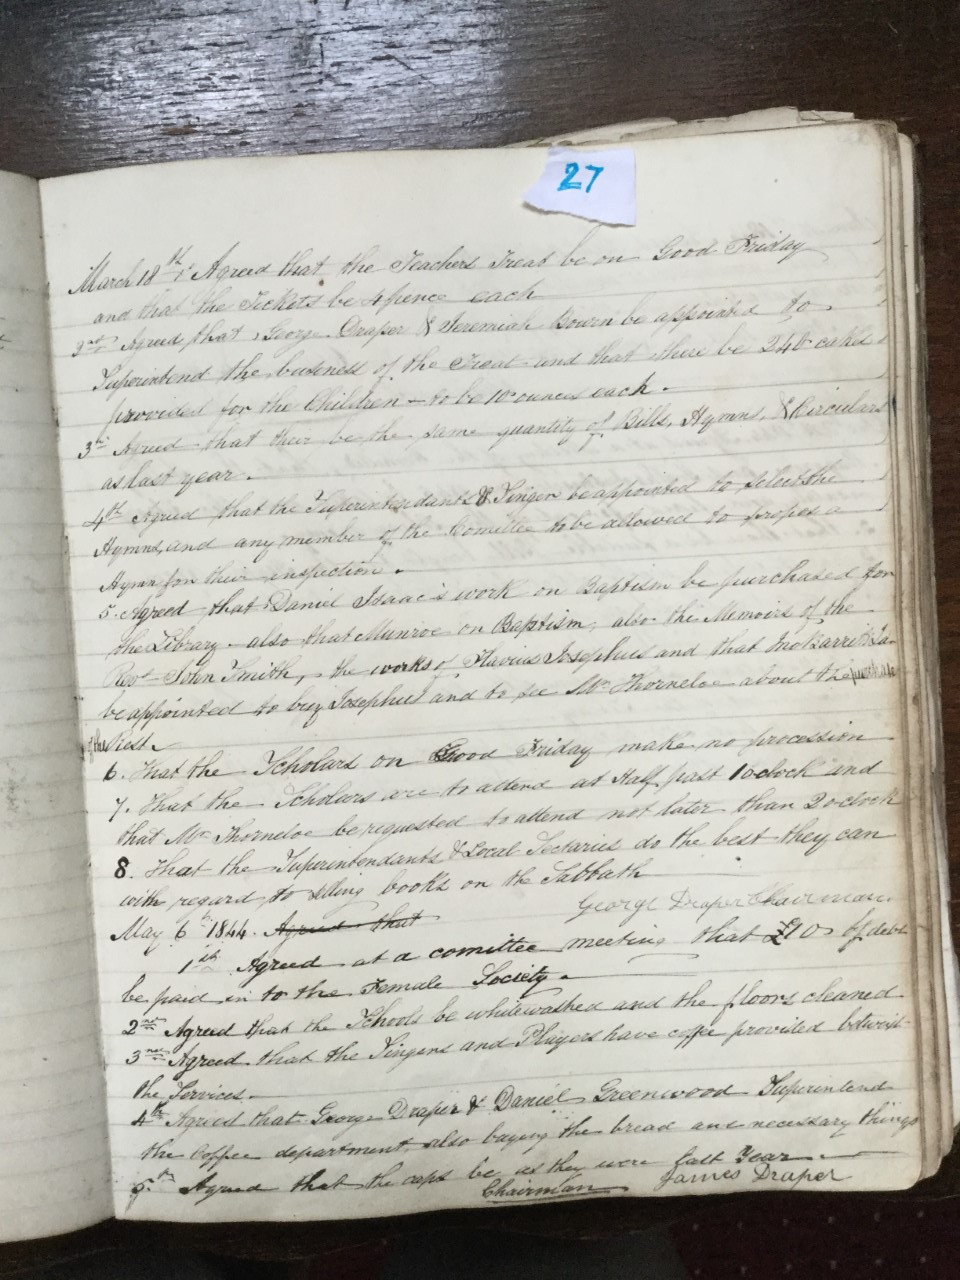 27
March 18th 1st Agreed that the Teachers Treat be on Good Friday
and that the Tickets be 4 pence each
2nd Agreed that George Draper & Jeremiah Bown be appointed to
Superintend the business of the Treat and that there be 240 cakes
provided for the Children - to be 10 ounces each.
3rd Agreed that their be the same quantity of Bills, Hymns, & Circulars
as last year.
4th Agreed that the Superintendants & Singer be appointed to select the
Hymns, and any member of the Comittee to be allowed to propose a
Hymn for their inspection.
5. Agreed that Daniel Isaac's work on Baptism be purchased for
the Library - also that Munroe on Baptism, also the Memoirs of the
Revd John Smith, the works of Flavius Josephus and that Barrett
be appointed to buy Josephus and to see Mr Thorneloe about the purchase
of the Rest.
6. That the Scholars on Good Friday make no procession
7. That the Scholars are to attend at Half past 1 oclock and
that Mr Thorneloe be requested to attend not later than 2 oclock
8. That the Superintendants & Local do the best they can
with regard to selling books on the Sabbath
George Draper Chairman.
May 6th 1844. Agreed that
1st Agreed at a comittee meeting that £10 of debt
be paid in to the Female Society.
2nd Agreed that the Schools be whitewashed and the floors cleaned
3rd Agreed that the Singers and Players have coffee provided betwixt
the Services.
4th Agreed that George Draper & Daniel Greenwood Superintend
the Coffee department, also buying the bread and necessary things
5th Agreed that the caps be as they were last Year.
Chairman James Draper